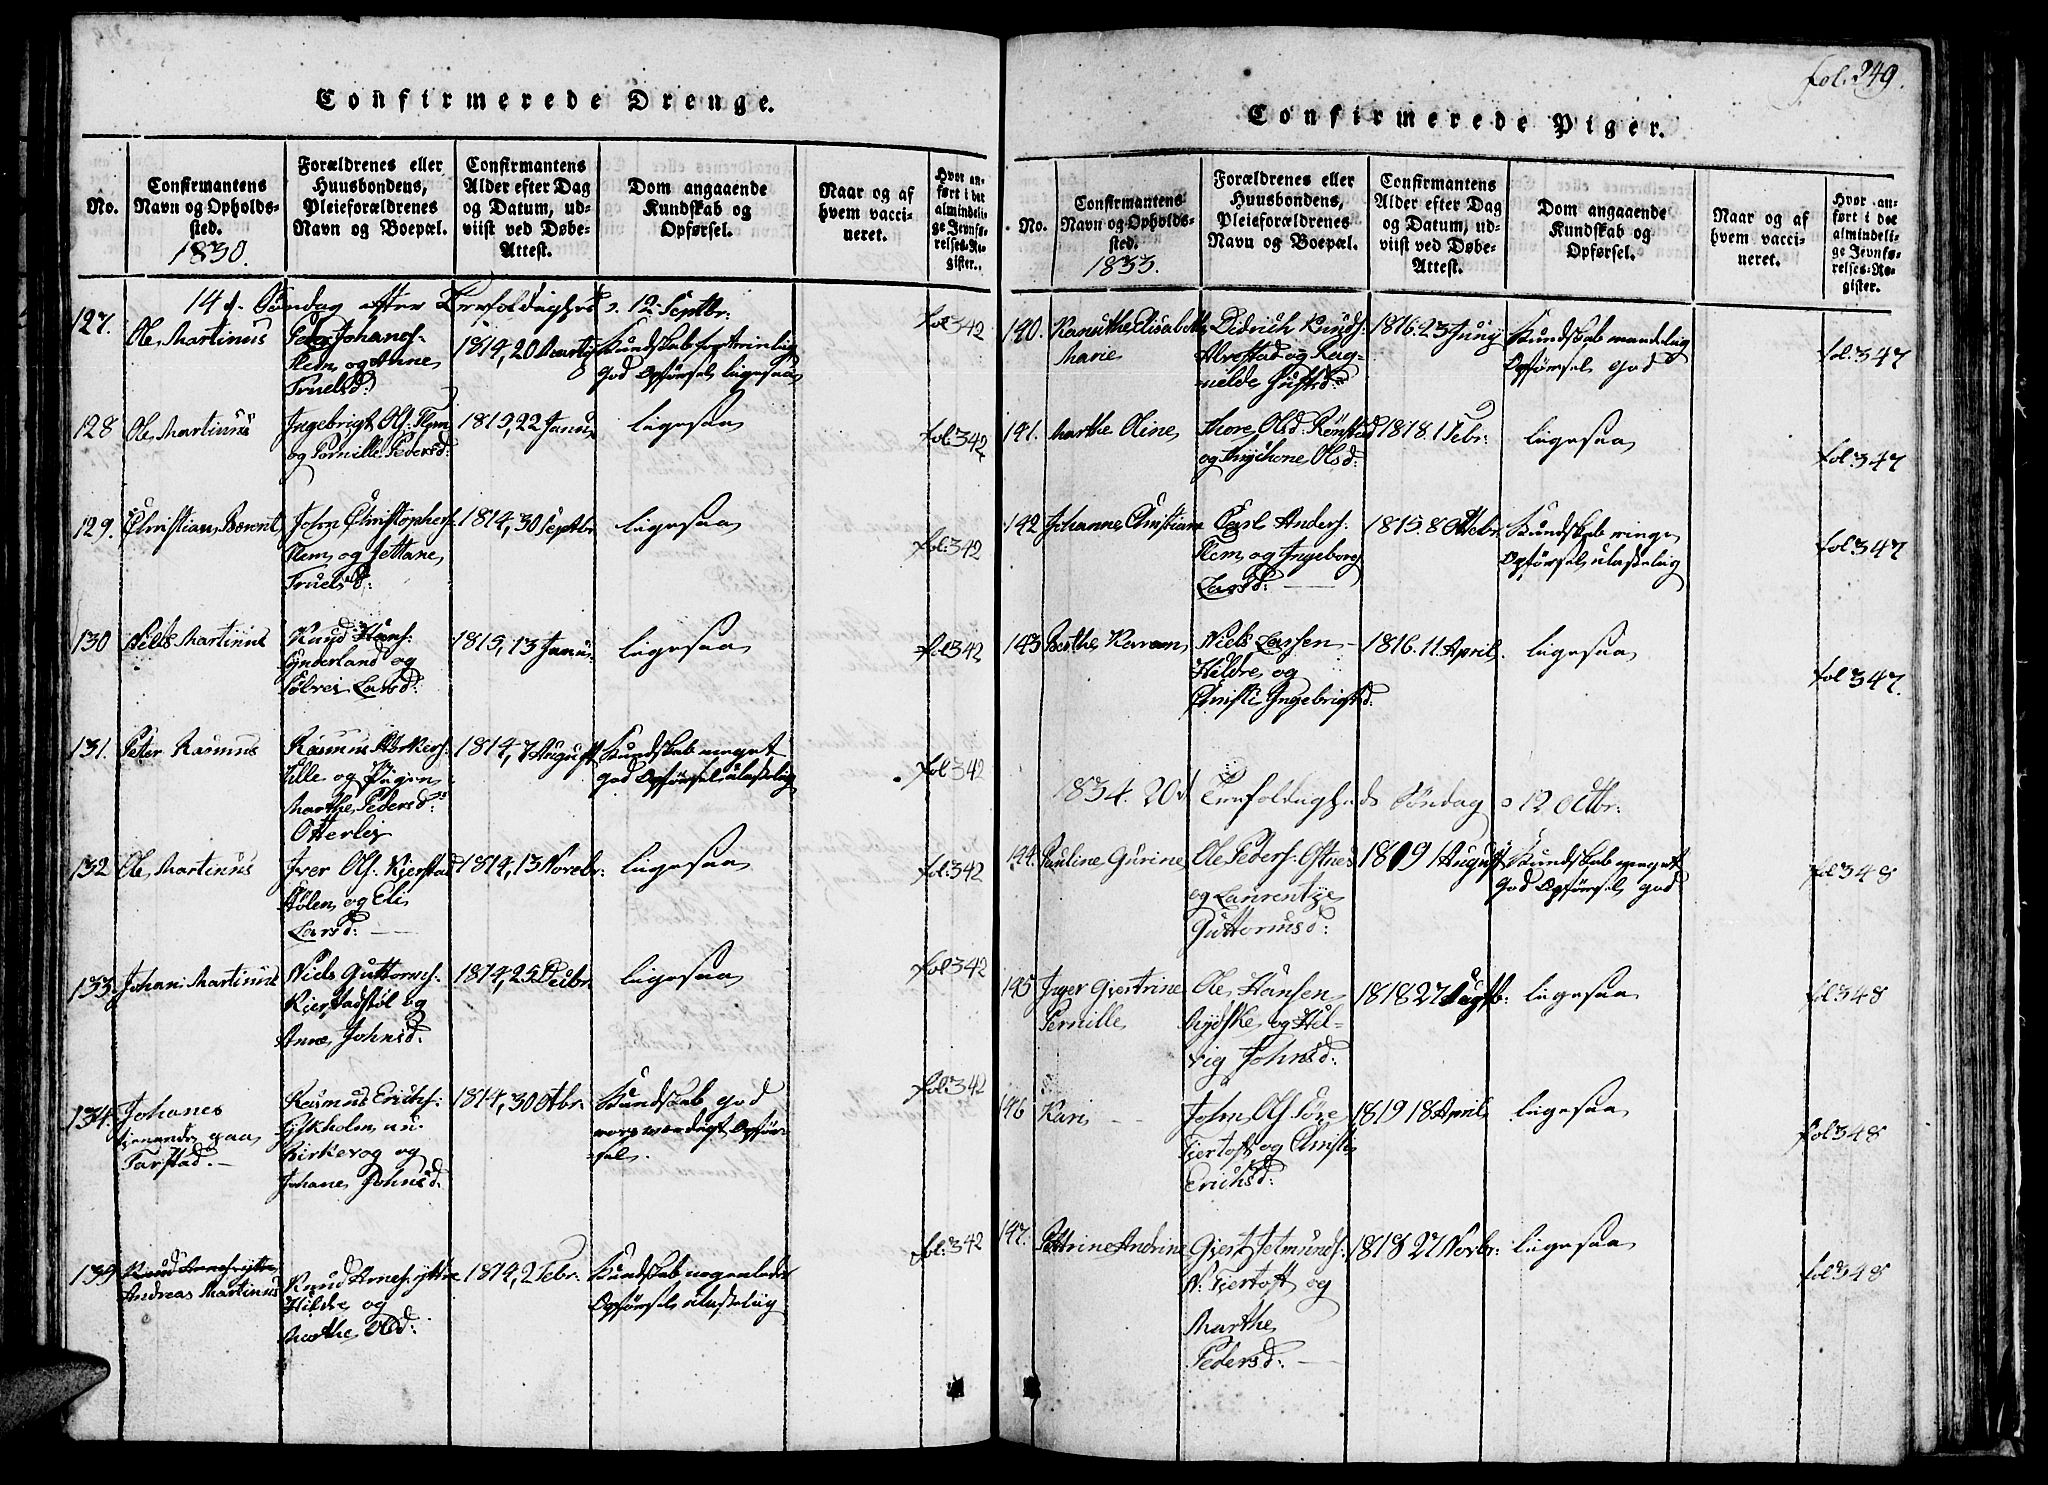 Confirmerede Drenge.
No.
Confirmantens
Navn og Opholds-
sted.
1830.
Forældrenes eller
Huusbondens,
Pleieforældrenes
Navn og Boepæl.
Confirmantens
Alder efter Dag
og Datum, ud-
viist ved Døbe-
Attest.
Dom angaaende
Kundskab og
Opførsel.
Naar og af
hvem vacci-
neret.
Hvor an-
ført i det
almindeli-
ge Jevnfø-
relses-Re-
gister.
14 d. Søndag efter Trefoldighed 12 Septbr:
127.
Ole Martinus
Johans:
Flem og Anne
Truelsd:
1814, 20
Kundskab
god Opførsel ligesaa
fol 342
128
Ole Martinus
Ingebrigt Ols: Flem
og Pernille Pedersd:
1815, 22 Janu
ligesaa
fol: 342
129.
Christian Berent
John Christophers:
Flem og Jettane
Truelsd:
1814, 30 Septbr
ligesaa
fol: 342
130
Niels Martinus
Knud Hans:
Synderland og
Sølvei Larsd:
1815, 13 Janu
ligesaa
fol 342
131.
Peter Rasmus
Rasmus
og Pigen
Marthe Pedersd:
Otterlei
1814, 7 August
Kundskab meget
god Opførsel ulastelig
fol 342
132
Ole Martinus
Iver Ols: Kjerstad
Hølen og Eli
Larsd:
1814, 13 Novebr:
ligesaa
fol: 342
133.
Johan Martinus
Niels Guttorms:
Kjerstadstøl og
Anne Johnsd:
1814, 25 Deibr
ligesaa
fol 342
134.
Johanes
tjenende paa
Farstad.
Rasmus Erichs:
nu
Kirkevog og
Johane Johnsd:
1814, 30 Otbr:
Kundskab god
værdigt Opfør-
sel.
fol: 342
139
Andreas Martinus
Knud Arnes:
Hildre og
Marthe Olsd:
1814, 2 Febr:
Kundskab nogenledes
Opførsel ulastelig
fol: 342
fol. 249.
Confirmerede Piger.
No.
Confirmantens
Navn og Opholds-
sted.
1833.
Forældrenes eller
Huusbondens,
Pleieforældrenes
Navn og Boepæl.
Confirmantens
Alder efter Dag
og Datum, ud-
viist ved Døbe-
Attest.
Dom angaaende
Kundskab og
Opførsel.
Naar og af
hvem vacci-
neret.
Hvor an-
ført i det
almindeli-
ge Jevnfø-
relses-Re-
gister.
140.
Kanuthe Elisabeth
Marie
Didrich Knuds:
Alvestad og Rag-
nelde
1816. 23 Juny
Kundskab maadelig
Opførsel god
fol. 347
141.
Marthe Oline
Thore Olsd: Rønstad
og Olsd:
1818. 1 Febr:
ligesaa
fol. 347
142
Johanne Christiane
Carl Anders:
Flem og Ingeborg
Larsd:
1815. 8 Octobr.
Kundskab ringe
Opførsel ulastelig
fol. 347
143
Berthe Karen
Niels Lassen
Hildre og
Christi Ingebrigtsd:
1816. 11 April.
ligesaa
fol 347.
1834. 20 d Trefoldigheds Søndag 12 Octbr:
144.
Pauline Gurine
Ole Peders: Ostnes
og Laurentze
Guttormsd:
1819 1 August
Kundskab meget
god Opførsel god
fol 348
145
Inger Gjertrine
Pernille
Ole Hansen
Rydske og Hel-
vig Johnsd:
1818 27
ligesaa
fol 348
146
Kari
John Ols:
Fjertoft og Christi
Erichsd:
1819 18 April
ligesaa
fol 348
147.
Petrine Andrine
Gjert Jetmunds:
N: Fjertoft og
Marthe
Pedersd:
1818 27 Novbr:
ligesaa
fol 348